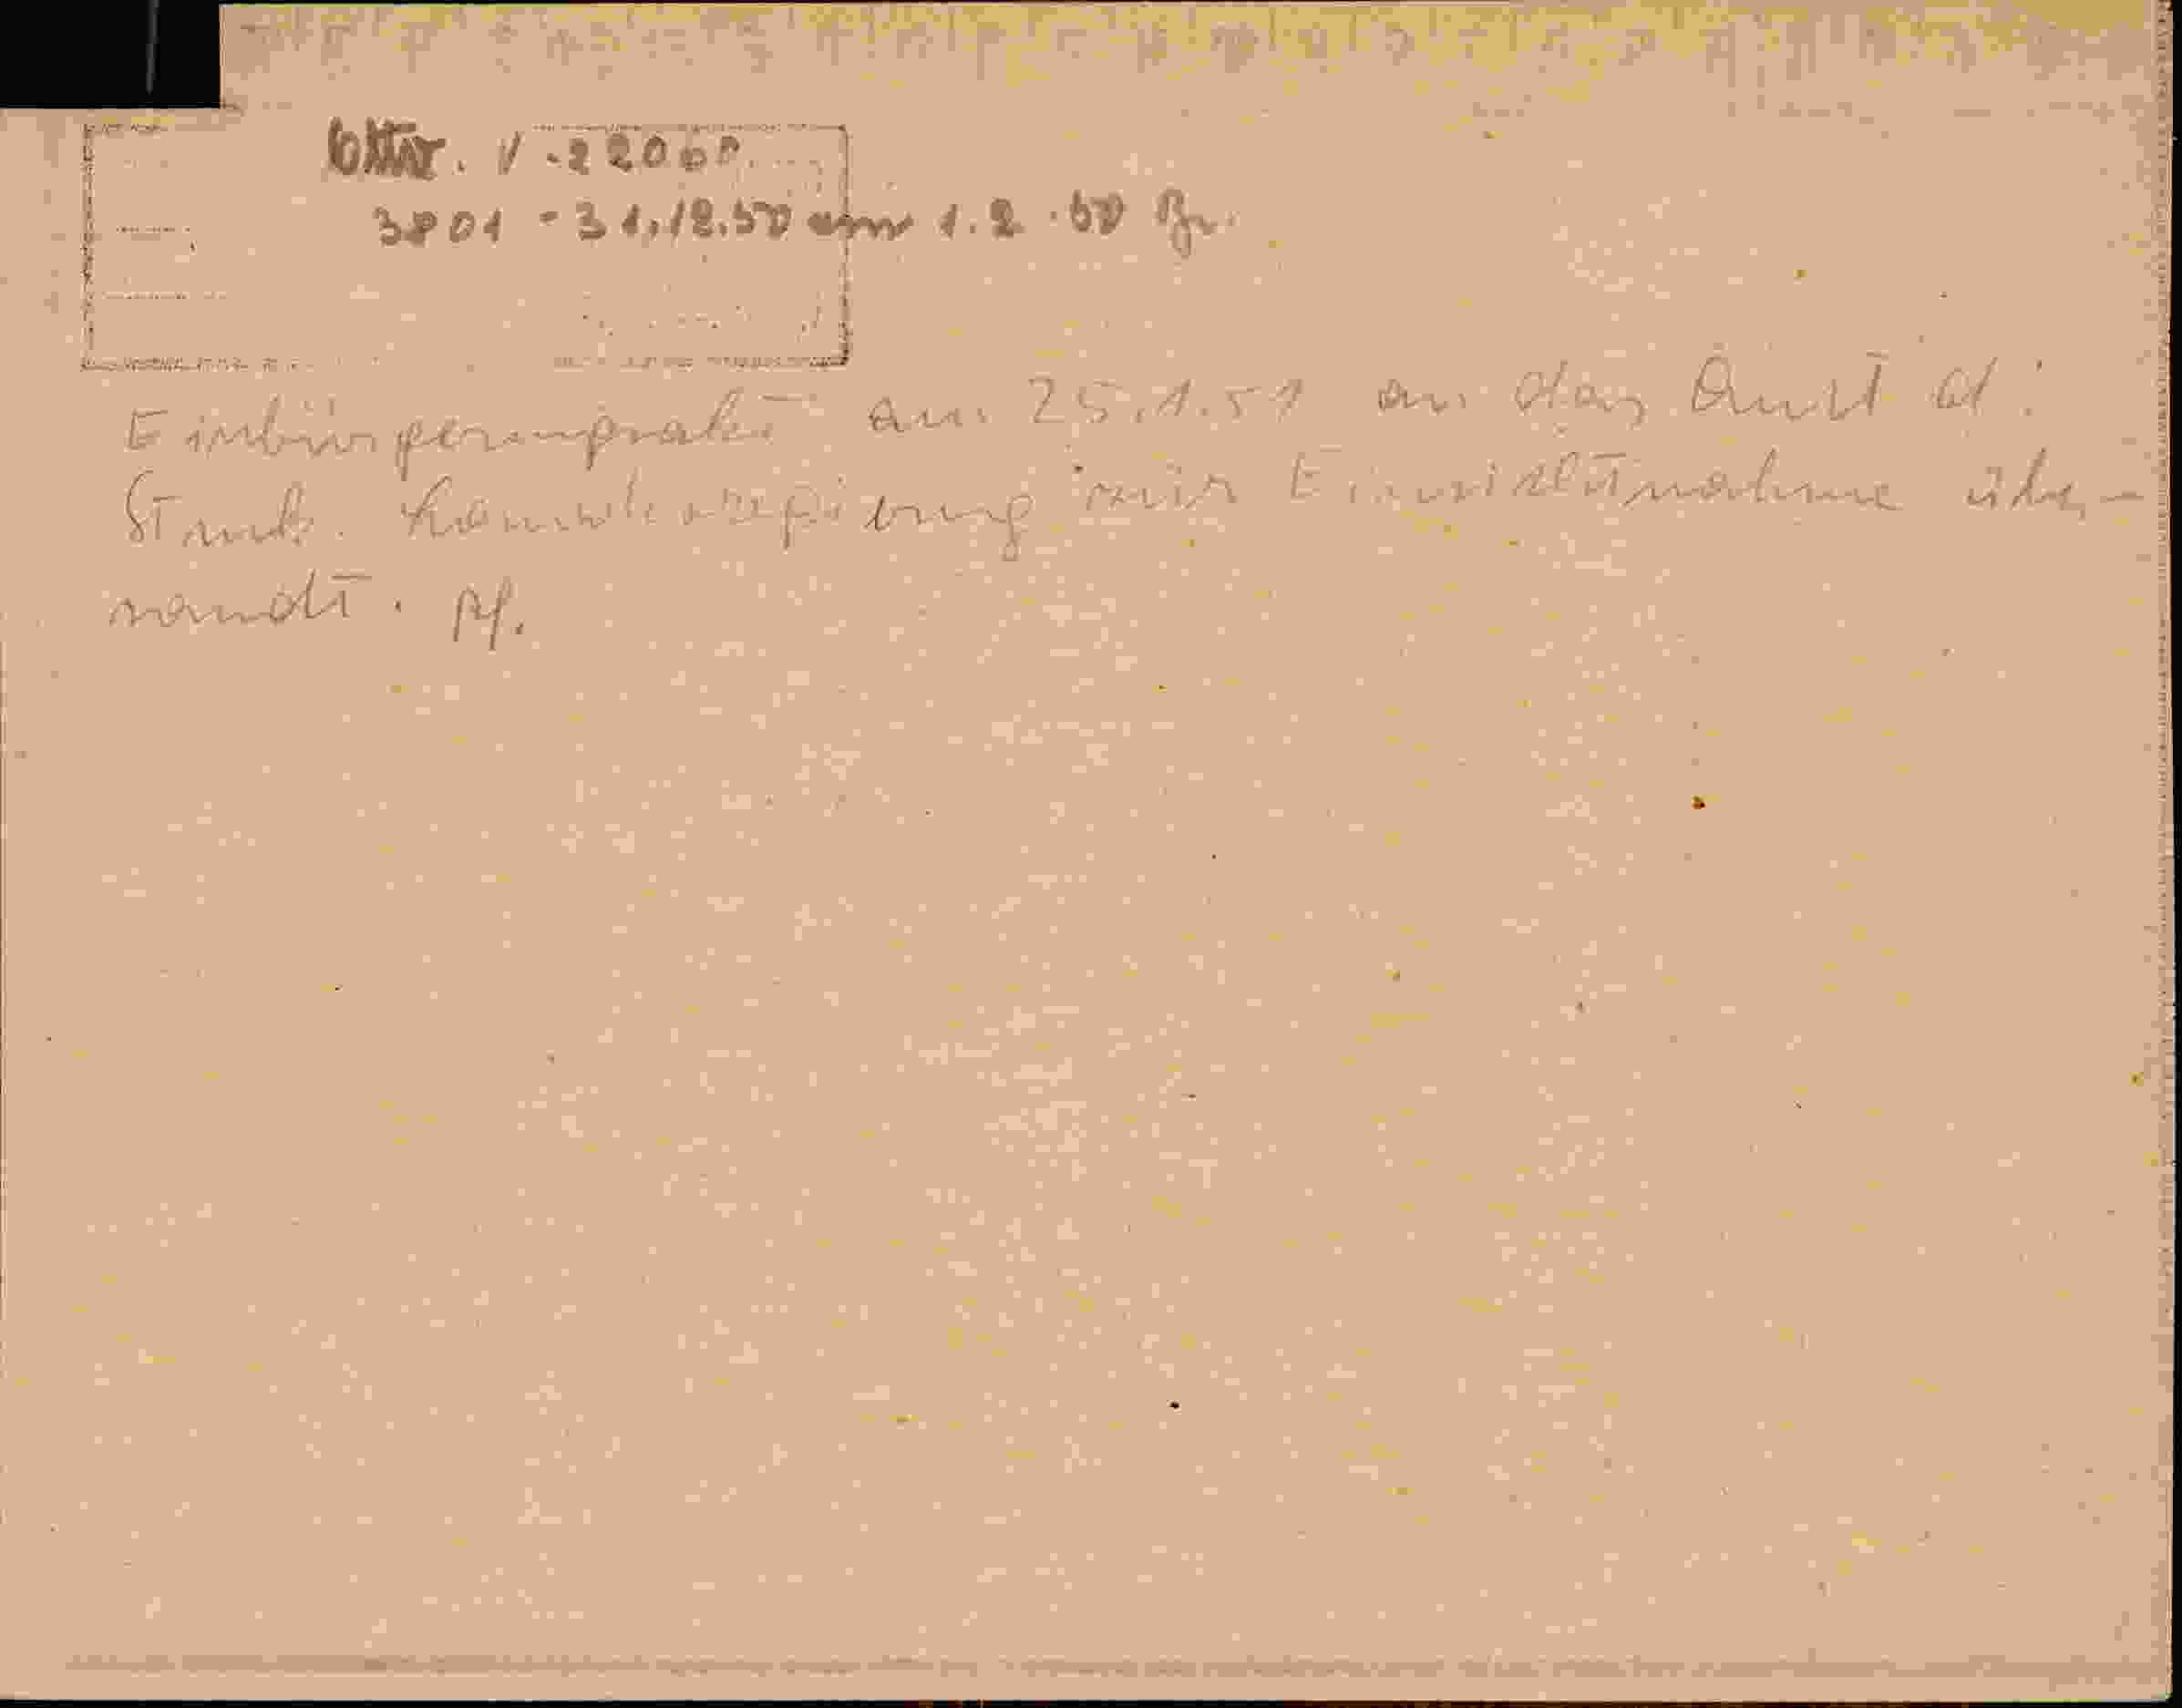 V. 22000
3801 - 31.12.50 am 1.2.50 Br.
Einbürgerungsakt am 25.1.51 an das Amt d.
Stmk. Landesregierung zur Einsichtnahme über-
sandt. M.